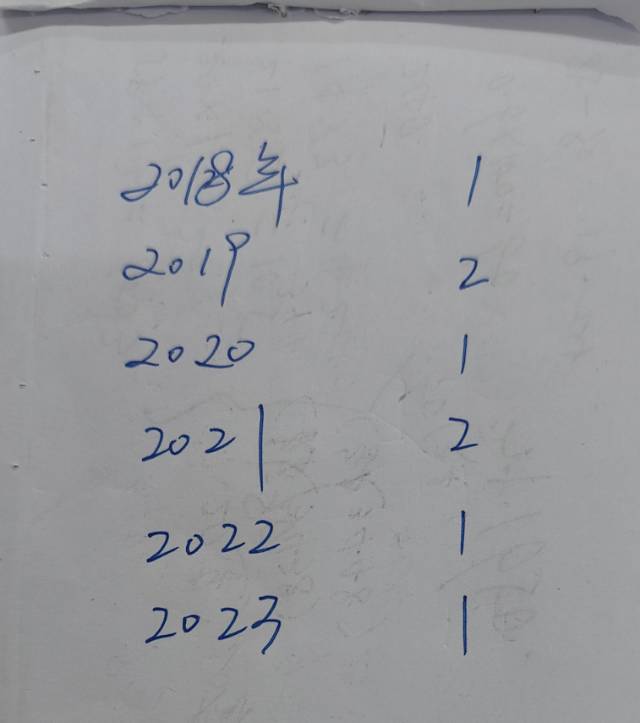 2018年 1
2019 2
2020 1
2021 2
2022 1
2023 1